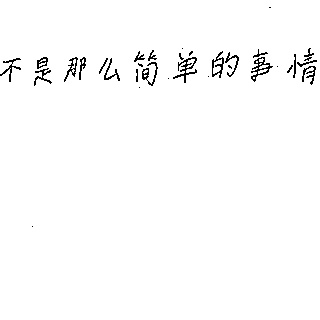 不是那么简单的事情